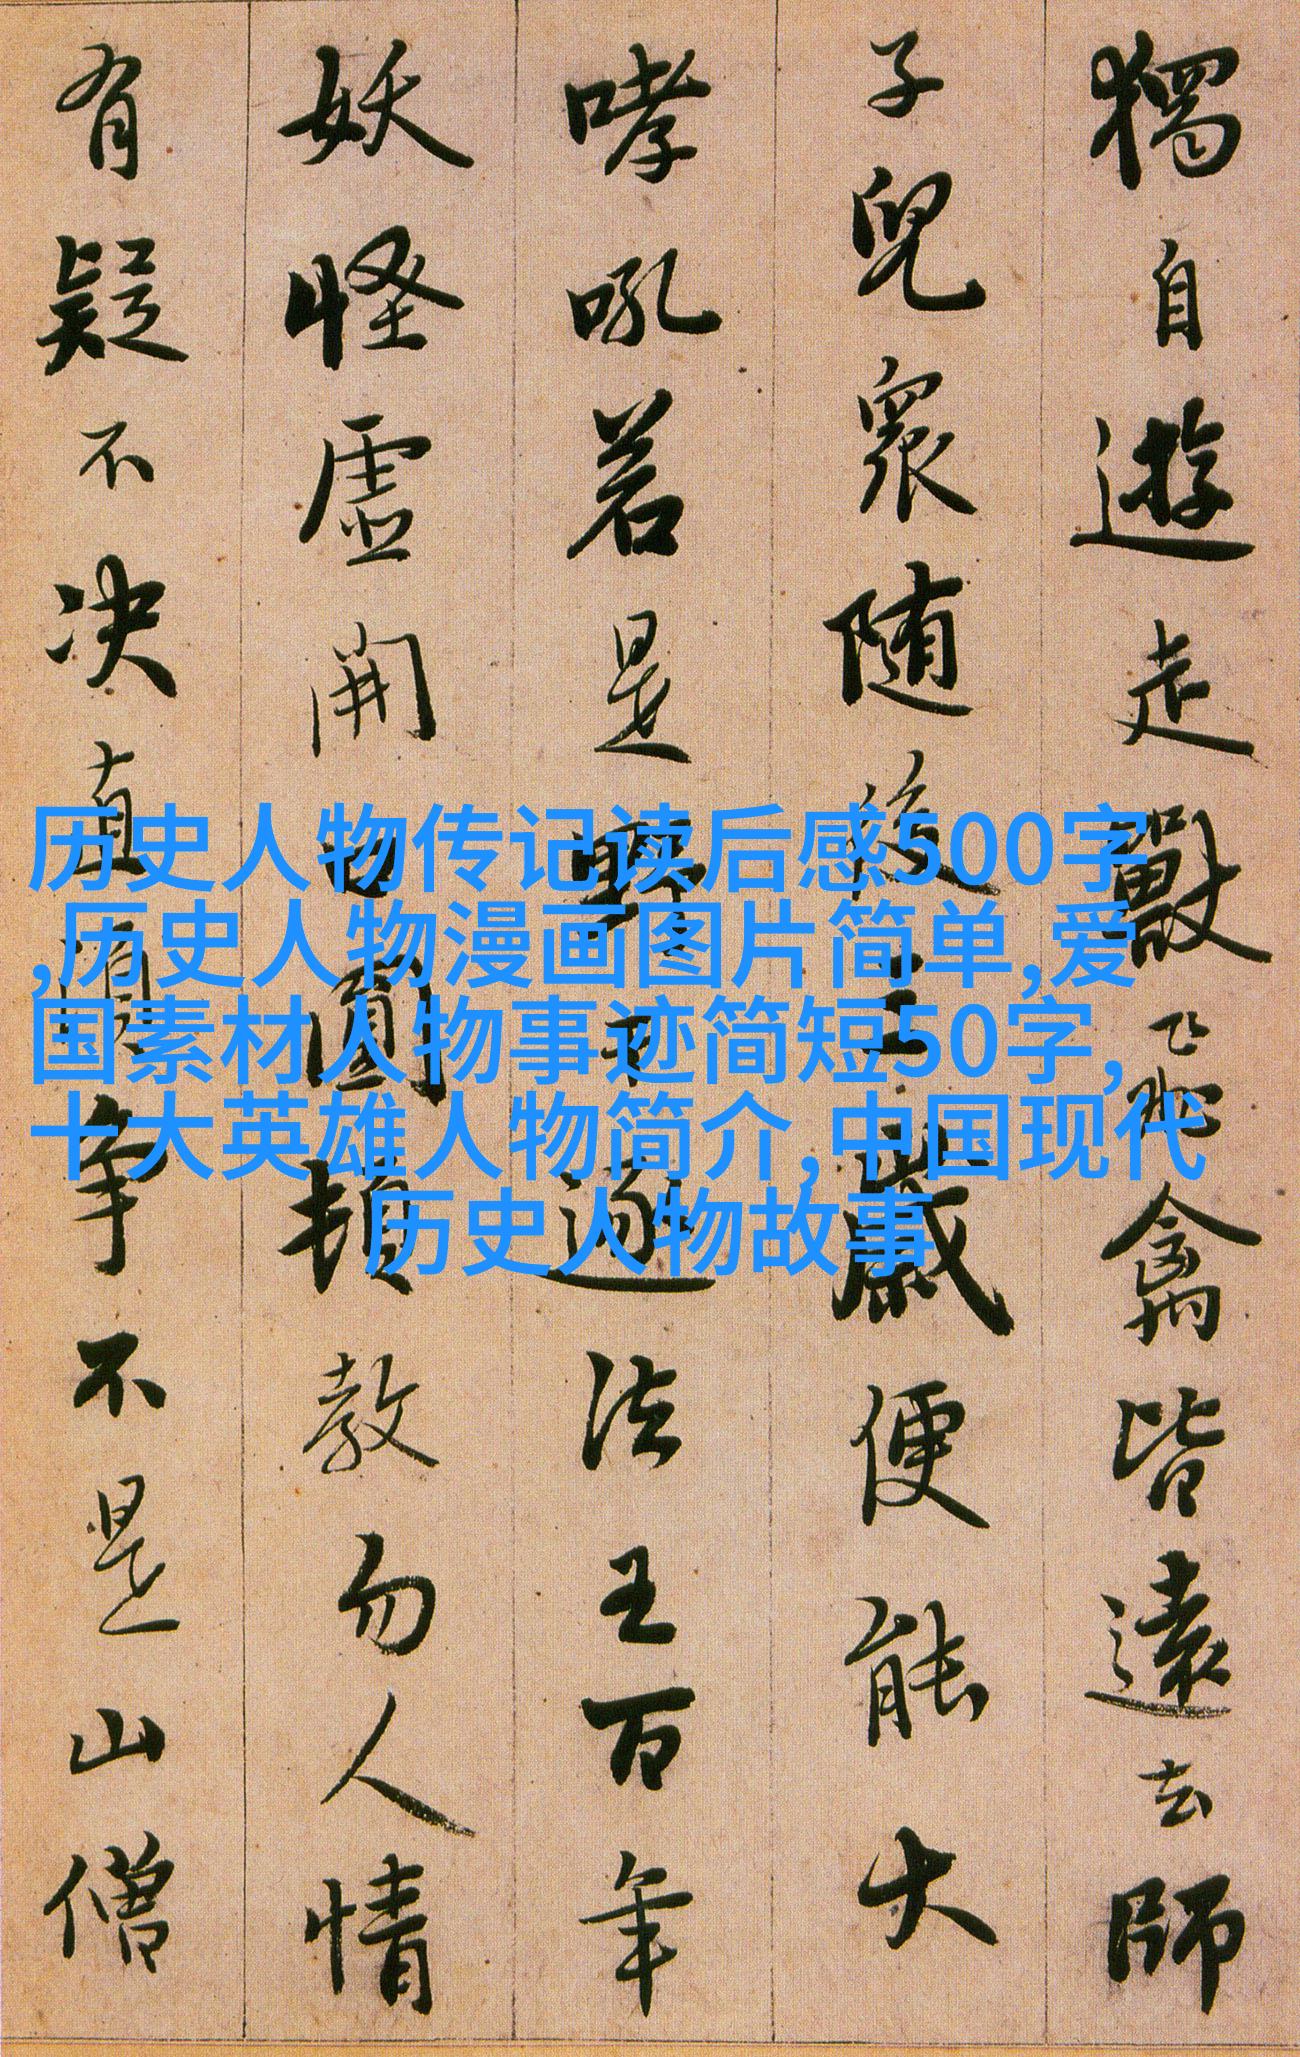 獨自遊走獸飛禽皆遠去師
子兒衆随後三歲便能大
哮吼若是野干逐法王百年
妖怪虛開口圓頓教勿人情
有疑不决直須争不是山僧
历史人物传记读后感500字
,历史人物漫画图片简单,爱
国素材人物事迹简短50字,
十大英雄人物简介,中国现代
历史人物故事